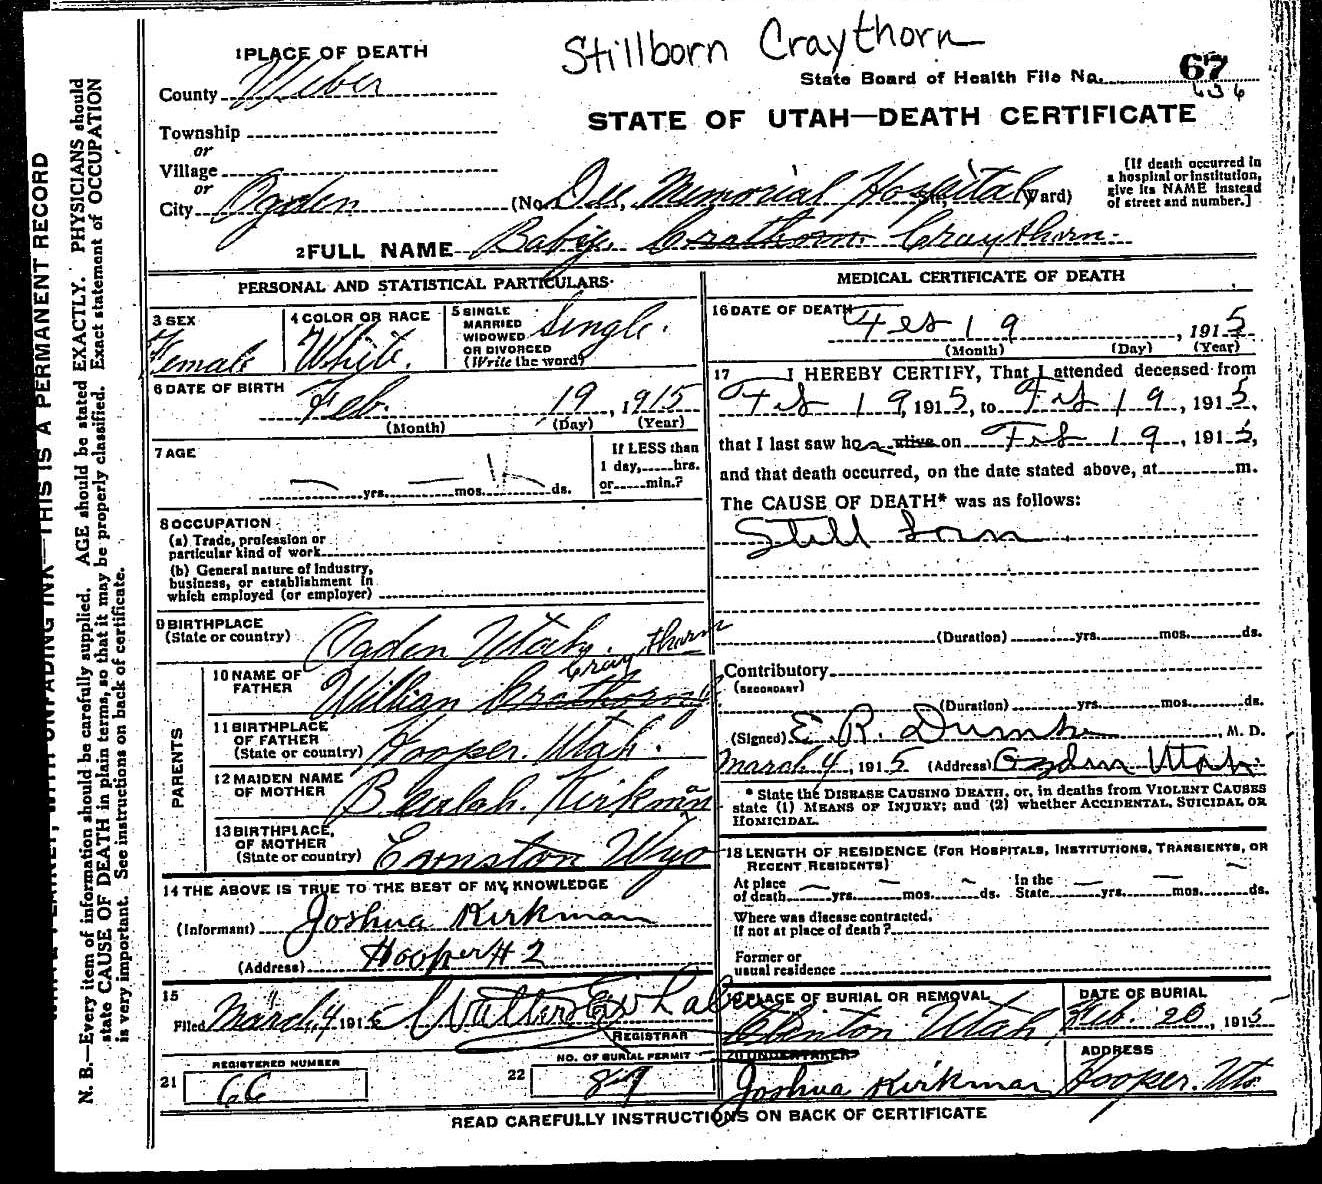 Stillborn Craythorn
1 PLACE OF DEATH
County Weber
State Board of Health File No. 67
636
STATE OF UTAH—DEATH CERTIFICATE
Township
or
Village
or
City Ogden (No. Dee Memorial Hospital St., Ward)
[If death occurred in
a hospital or institution,
give its NAME instead
of street and number.]
2 FULL NAME Baby Crathorn Craythorn
PERSONAL AND STATISTICAL PARTICULARS
3 SEX
Female
4 COLOR OR RACE
White
5 SINGLE
MARRIED
WIDOWED
OR DIVORCED
(Write the word)
Single.
6 DATE OF BIRTH
Feb. 19, 1915
(Month) (Day) (Year)
7 AGE
yrs. mos. ds.
If LESS than
1 day, hrs.
or min.?
8 OCCUPATION
(a) Trade, profession or
particular kind of work
(b) General nature of industry,
business, or establishment in
which employed (or employer)
9 BIRTHPLACE
(State or country) Ogden Utah.
PARENTS
10 NAME OF
FATHER
Craythorn
William Crathorn
11 BIRTHPLACE
OF FATHER
(State or country) Hooper. Utah.
12 MAIDEN NAME
OF MOTHER Beulah. Kirkman
13 BIRTHPLACE,
OF MOTHER
(State or country) Wyo
14 THE ABOVE IS TRUE TO THE BEST OF MY KNOWLEDGE
(Informant) Joshua Kirkman
(Address) Hooper # 2
15
Filed March, 4 1915
REGISTRAR
REGISTERED NUMBER
21 66
NO. OF BURIAL PERMIT
22 89
MEDICAL CERTIFICATE OF DEATH
16 DATE OF DEATH Feb 19, 1915
(Month) (Day) (Year)
17 I HEREBY CERTIFY, That I attended deceased from
Feb 19, 1915, to Feb 19, 1915,
that I last saw her alive on Feb 19, 1915,
and that death occurred, on the date stated above, at m.
The CAUSE OF DEATH* was as follows:
Still born
(Duration) yrs. mos. ds.
Contributory
(SECONDARY)
(Duration) yrs. mos. ds.
(Signed) E. R. Dumke, M. D.
March 4, 1915 (Address) Ogden Utah
* State the DISEASE CAUSING DEATH, or, in deaths from VIOLENT CAUSES
state (1) MEANS OF INJURY; and (2) whether ACCIDENTAL, SUICIDAL OR
HOMICIDAL.
18 LENGTH OF RESIDENCE (FOR HOSPITALS, INSTITUTIONS, TRANSIENTS, OR
RECENT RESIDENTS)
At place
of death yrs. mos. ds.
In the
State yrs. mos. ds.
Where was disease contracted,
if not at place of death?
Former or
usual residence
19 PLACE OF BURIAL OR REMOVAL
Clinton Utah.
DATE OF BURIAL
Feb. 20, 1915
20 UNDERTAKER
Joshua Kirkman
ADDRESS
Hooper. Uta
READ CAREFULLY INSTRUCTIONS ON BACK OF CERTIFICATE
WITH UNFADING INK—THIS IS A PERMANENT RECORD
N. B.—Every item of information should be carefully supplied. AGE should be stated EXACTLY. PHYSICIANS should
state CAUSE OF DEATH in plain terms, so that it may be properly classified. Exact statement of OCCUPATION
is very important. See instructions on back of certificate.